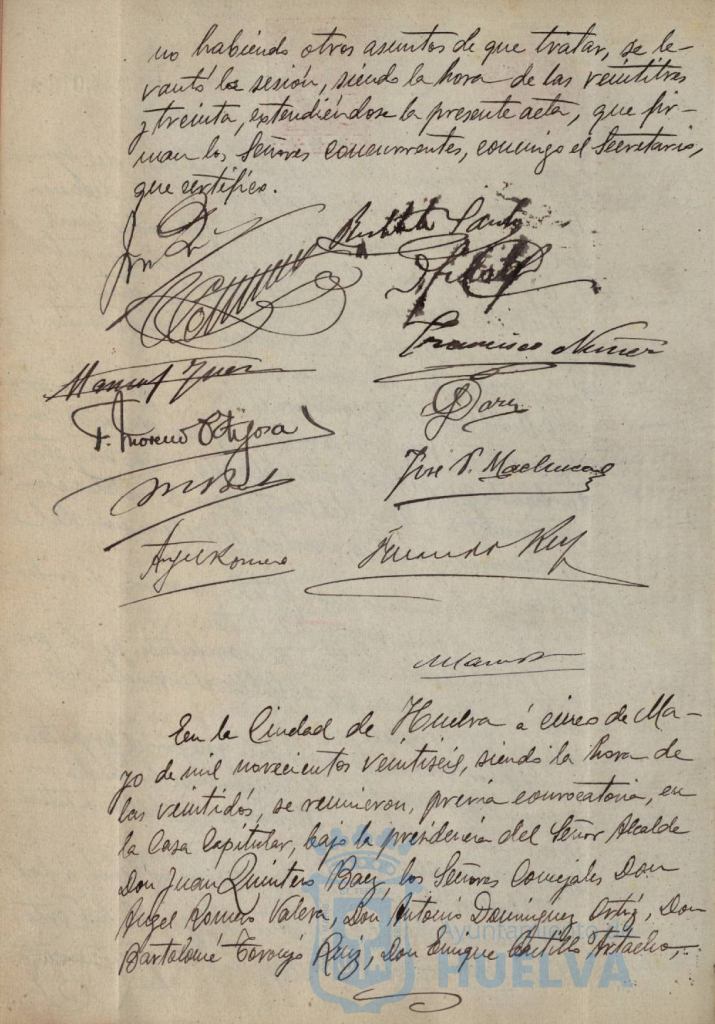 no habiendo otros asuntos de que tratar, se le-
vantó la sesión, siendo la hora de las veintitres
y treinta, extendiéndose la presente acta, que fir-
man los Señores concurrentes, conmigo el Secretario,
que certifico.
Francisco Nuñez
Manuel
F. Moreno Ortijosa
José P. Machuca
Angel Romero
Fernando Rey
En la Ciudad de Huelva á cinco de Ma-
yo de mil novecientos veintiseis, siendo la hora de
las veintidós, se reunieron, previa convocatoria, en
la Casa Capitular, bajo la presidencia del Señor Alcalde
Don Juan Quintero Baez, los Señores Concejales Don
Angel Romero Valera, Don Antonio Dominguez Ortiz, Don
Bartolomé Toronjo Ruiz, Don Enrique Castillo Artacho,
Ayuntamiento de
HUELVA